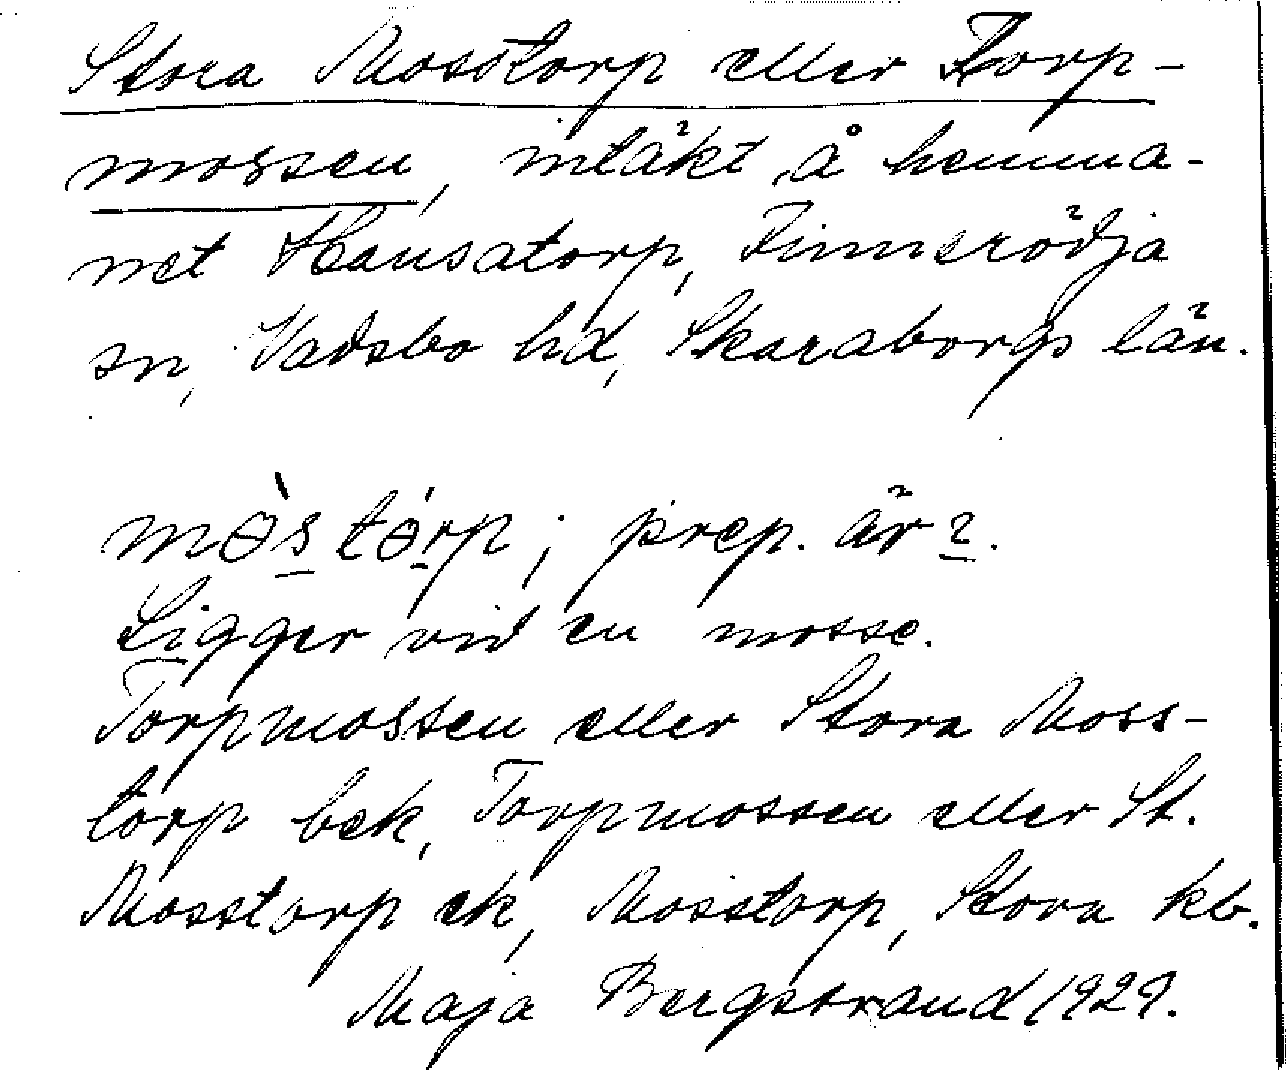 Stora Mosstorp eller Torp-
mossen, intäkt å hemma-
net Hansatorp, Finnerödja
sn, Vadsbo hd, Skaraborgs län.
mɵ̀stɵ́rp; prep. är?.
Ligger vid en mosse.
Torpmossen eller Stora Moss-
torp bek, Torpmossen eller St.
Mosstorp ek, Mosstorp, Stora kb.
Maja Bergstrand 1929.